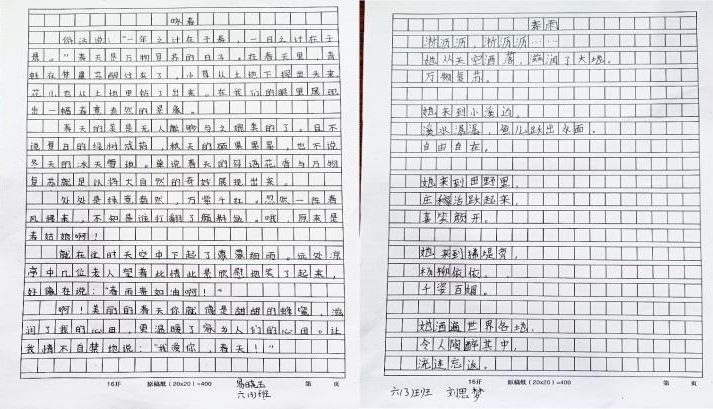 咏春
俗话说：“一年之计在于春，一日之计在于
晨。”春天是万物复苏的日子。在春天里，青
蛙在梦里苏醒过来了，小草从土地下探出头来，
花儿也从土地里钻了出来。在我们的眼里展现
出一幅春意盎然的景象。
春天的美是无人能够与之媲美的了。且不
说夏日的绿树成荫，秋天的硕果累累，也不说
冬天的冰天雪地。单说春天的鸟语花香与万物
复苏就足以将大自然的奇妙展现出来。
处处是绿意盎然，万紫千红。忽然一阵春
风拂来，不知是谁打翻了颜料盒。哦，原来是
春姑娘啊！
就在这时天空中下起了蒙蒙细雨。远处凉
亭中几位老人望着此情此景欣慰地笑了起来，
好像在说：“春雨贵如油啊！”
啊！美丽的春天你就像是甜甜的蜂蜜，滋
润了我的心田，更温暖了家乡人们的心田。让
我情不自禁地说：“我爱你，春天！”
16开 原稿纸（20x20）=400 第 页
六(3)班
春雨
淅沥沥，淅沥沥……
她从天空洒落，滋润了大地。
万物复苏。
她来到小溪边，
溪水潺潺，鱼儿跃出水面。
自由自在。
她来到田野里，
庄稼活跃起来，
喜笑颜开。
她来到堤旁，
杨柳依依，
千姿百媚。
她洒遍世界各地，
令人陶醉其中，
流连忘返。
16开 原稿纸（20x20）=400 第 页
六(3)班 刘思梦